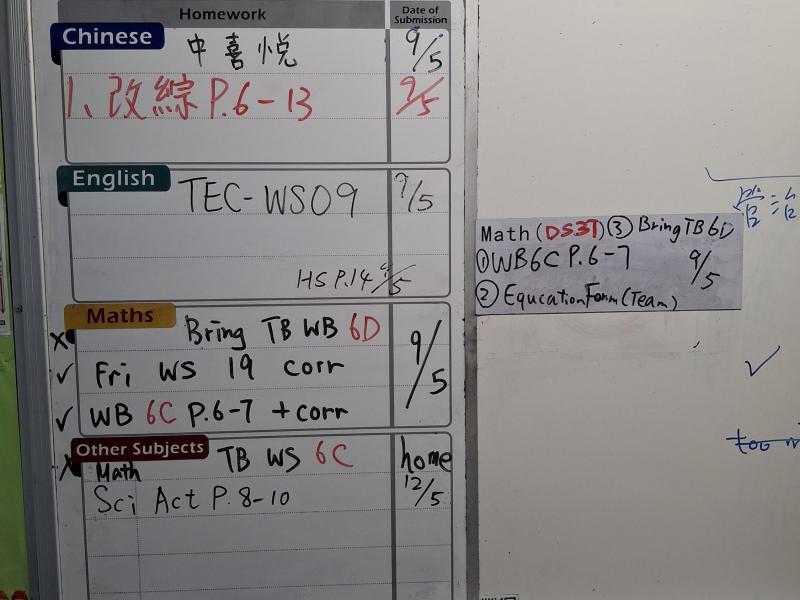 Homework Date of Submission
Chinese 中喜悅 9/5
1、改綜 P.6-13 9/5
English TEC-WS09 9/5
HS P.14 9/5
Maths Bring TB WB 6D 9/5
x
✓ Fri WS 19 corr
✓ WB 6C P.6-7 +corr
Other Subjects
x Math TB WS 6C home
Sci Act P.8-10 12/5
Math(DS3T) ③ Bring TB 6D
① WB6C P.6-7 9/5
② Equcation Form (Team)
✓